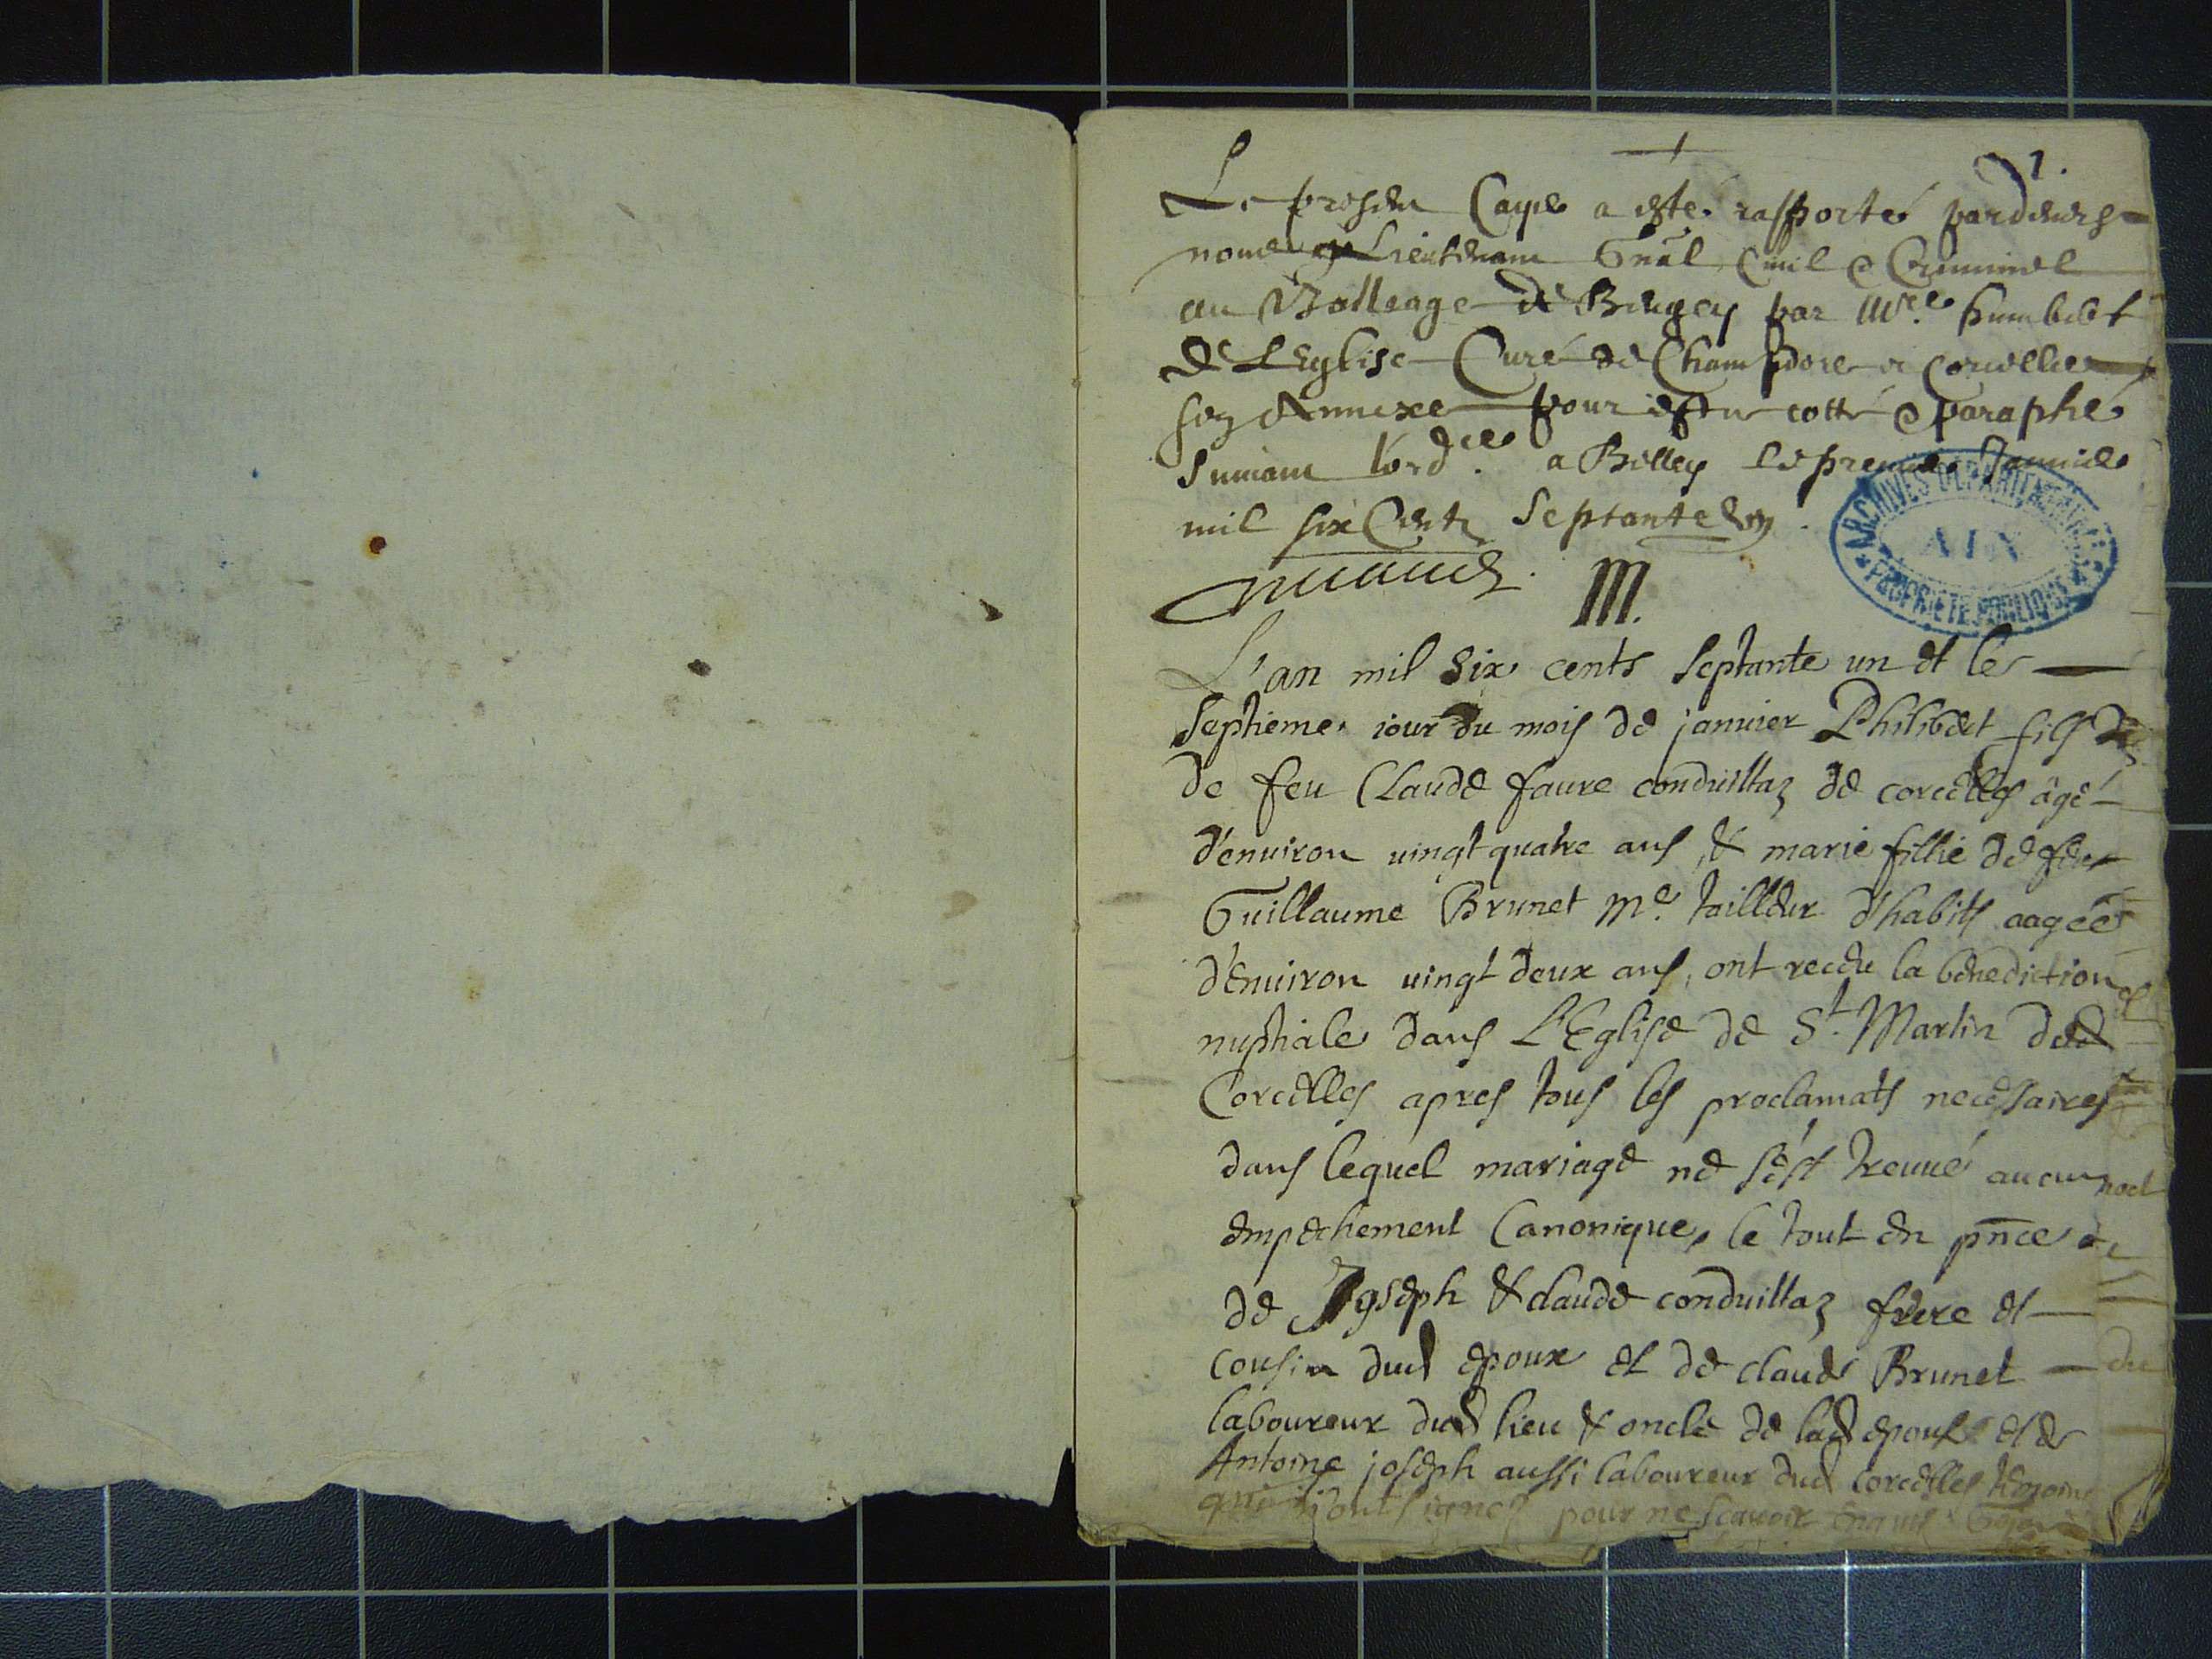 1.
Le present Cayer a esté rapporté pardevers
nous Lieutenant Gnãl Civil & Criminel
au Bailleage de Beugey par Mre. humbert
de L'Eglise Curé de Champdore et Corcelles
son Annexe pour estre cotté & paraphé
suivant l'ordce. a Belley le premier Janvier
mil six Cents septante un.
M.
L'an mil six cents septante un et le
septieme iour du mois de janvier Philibert fils
de feu Claude faure conduillaz de corcelles âgé
d'enuiron uingt quatre ans, & marie fillie de feu
Guillaume Brunet me. tailleur d'habits aagée
d'enuiron uingt deux ans, ont receu la benediction
nuptiale dans L'Eglise de St. Martin dud
Corcelles apres tous les proclamats necessaires
dans lequel mariage ne s'est treuué aucun
empechement Canonique, le tout en pñce
de Joseph & claude conduillaz frere et
cousin dud epoux et de claude Brunet
laboureur dud lieu & oncle de lad epouse et de
Antoine joseph aussi laboureur dud corcelles temoins
qui n'ont signes pour ne scauoir
ARCHIVES DEPARTEMENTALES
AIN
PROPRIETE PUBLIQUE